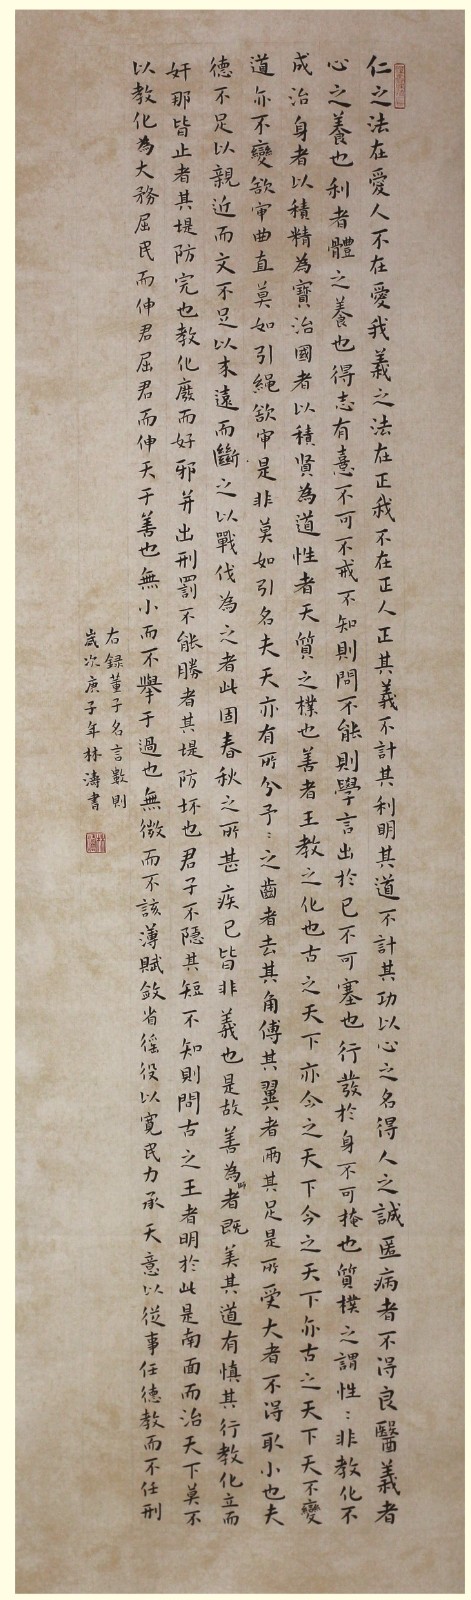 仁之法在愛人不在愛我義之法在正我不在正人正其義不計其利明其道不計其功以心之名得人之誠匿病者不得良醫義者
心之養也利者體之養也得志有憙不可不戒不知則問不能則學言出於己不可塞也行發於身不可掩也質樸之謂性：非教化不
成治身者以積精為寶治國者以積賢為道性者天質之樸也善者王教之化也古之天下亦今之天下今之天下亦古之天下天不變
道亦不變欲审曲直莫如引繩欲审是非莫如引名夫天亦有所分予：之齒者去其角傅其翼者兩其足是所受大者不得取小也夫
德不足以親近而文不足以来遠而斷之以戰伐為之者此固春秋之所甚疾已皆非義也是故善為師者既美其道有慎其行教化立而
奸邪皆止者其堤防完也教化廢而奸邪并出刑罰不能勝者其堤防坏也君子不隱其短不知則問古之王者明於此是南面而治天下莫不
以教化為大務屈民而伸君屈君而伸天于善也無小而不舉于過也無微而不該薄賦斂省徭役以寬民力承天意以從事任德教而不任刑
右録董子名言數則
歲次庚子年林濤書